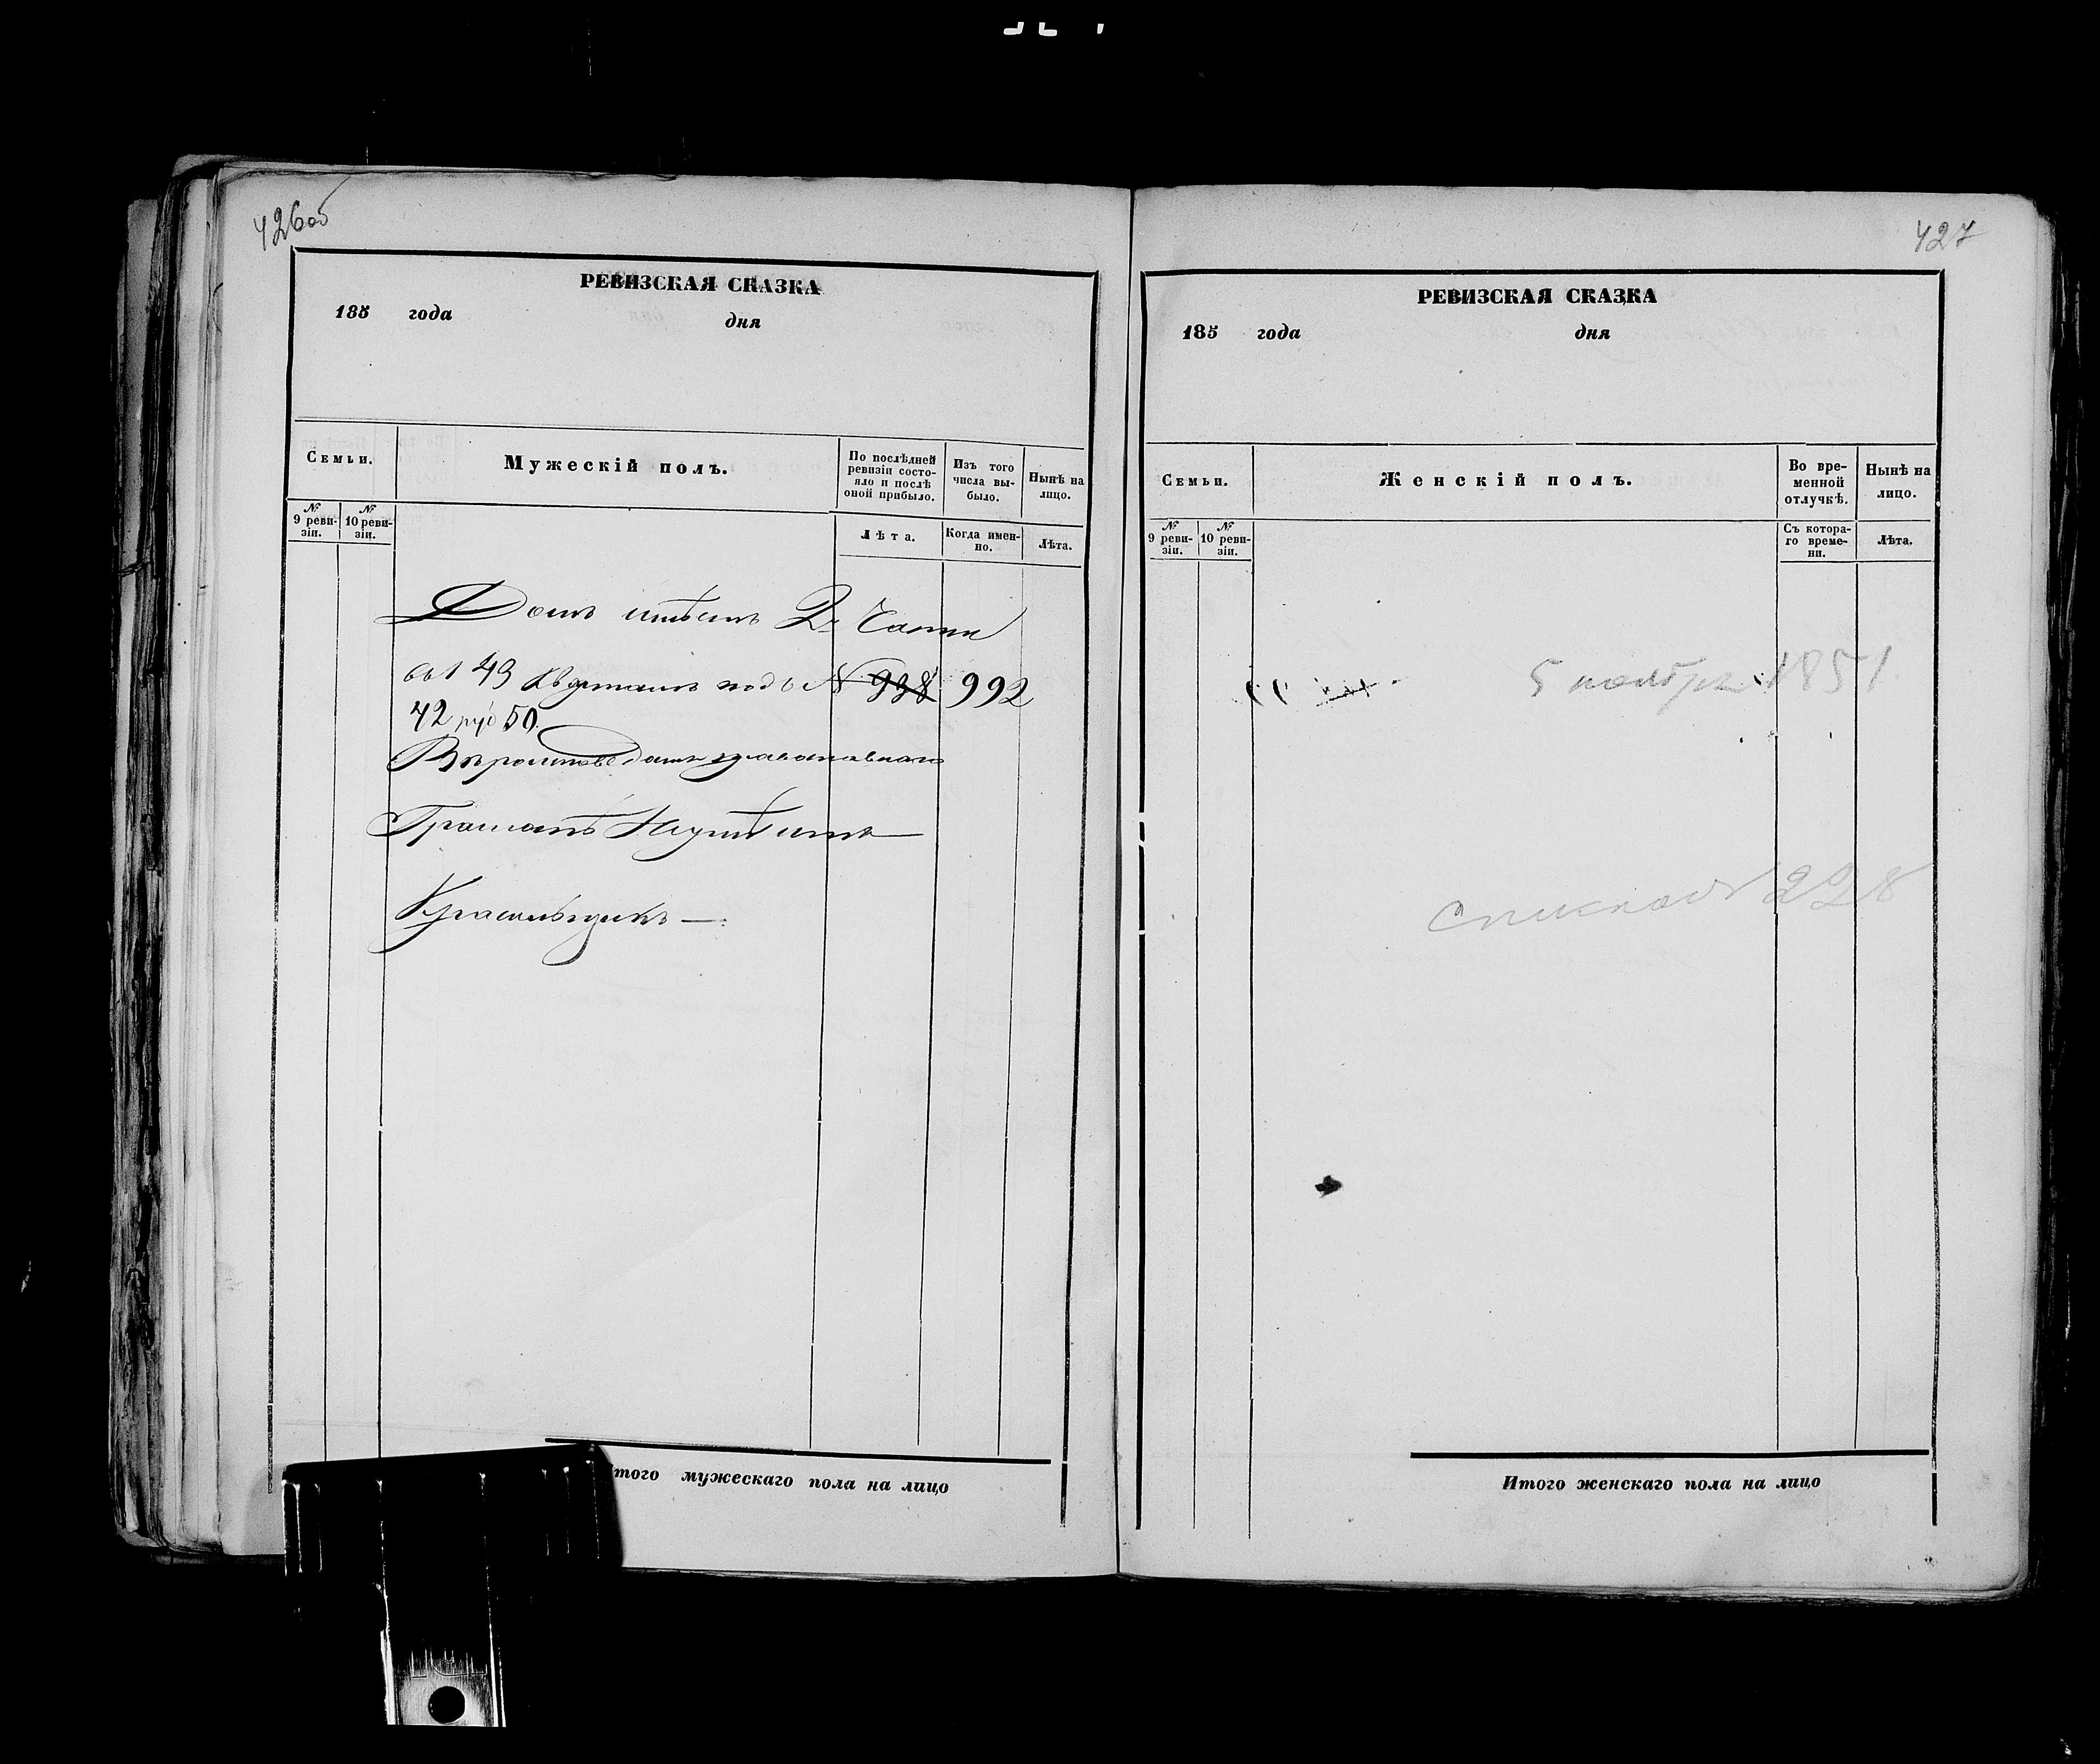 426об
РЕВИЗСКАЯ СКАЗКА
185 года дня
Семьи.
Мужескій полъ.
По послѣдней ревизіи состо-
яло и послѣ
оной прибыло.
Изъ того
числа вы-
было.
Нынѣ на
лицо.
№ 9 реви-
зіи.
№ 10 реви-
зіи.
Лѣта.
Когда имен-
но.
Лѣта.
Домъ имѣетъ 2й Части
въ 43 кварталѣ подъ № 938 992
42 руб 50
Вѣроисповѣданія православнаго
Грамотѣ Неумѣетъ
Красильщикъ —
того мужескаго пола на лицо
427
РЕВИЗСКАЯ СКАЗКА
185 года дня
Семьи.
Женскій полъ.
Во вре-
менной
отлучкѣ.
Нынѣ на
лицо.
№ 9 реви-
зіи.
№ 10 реви-
зіи.
Съ котора-
го време-
ни.
Лѣта.
5 ноября 1851.
228
Итого женскаго пола на лицо